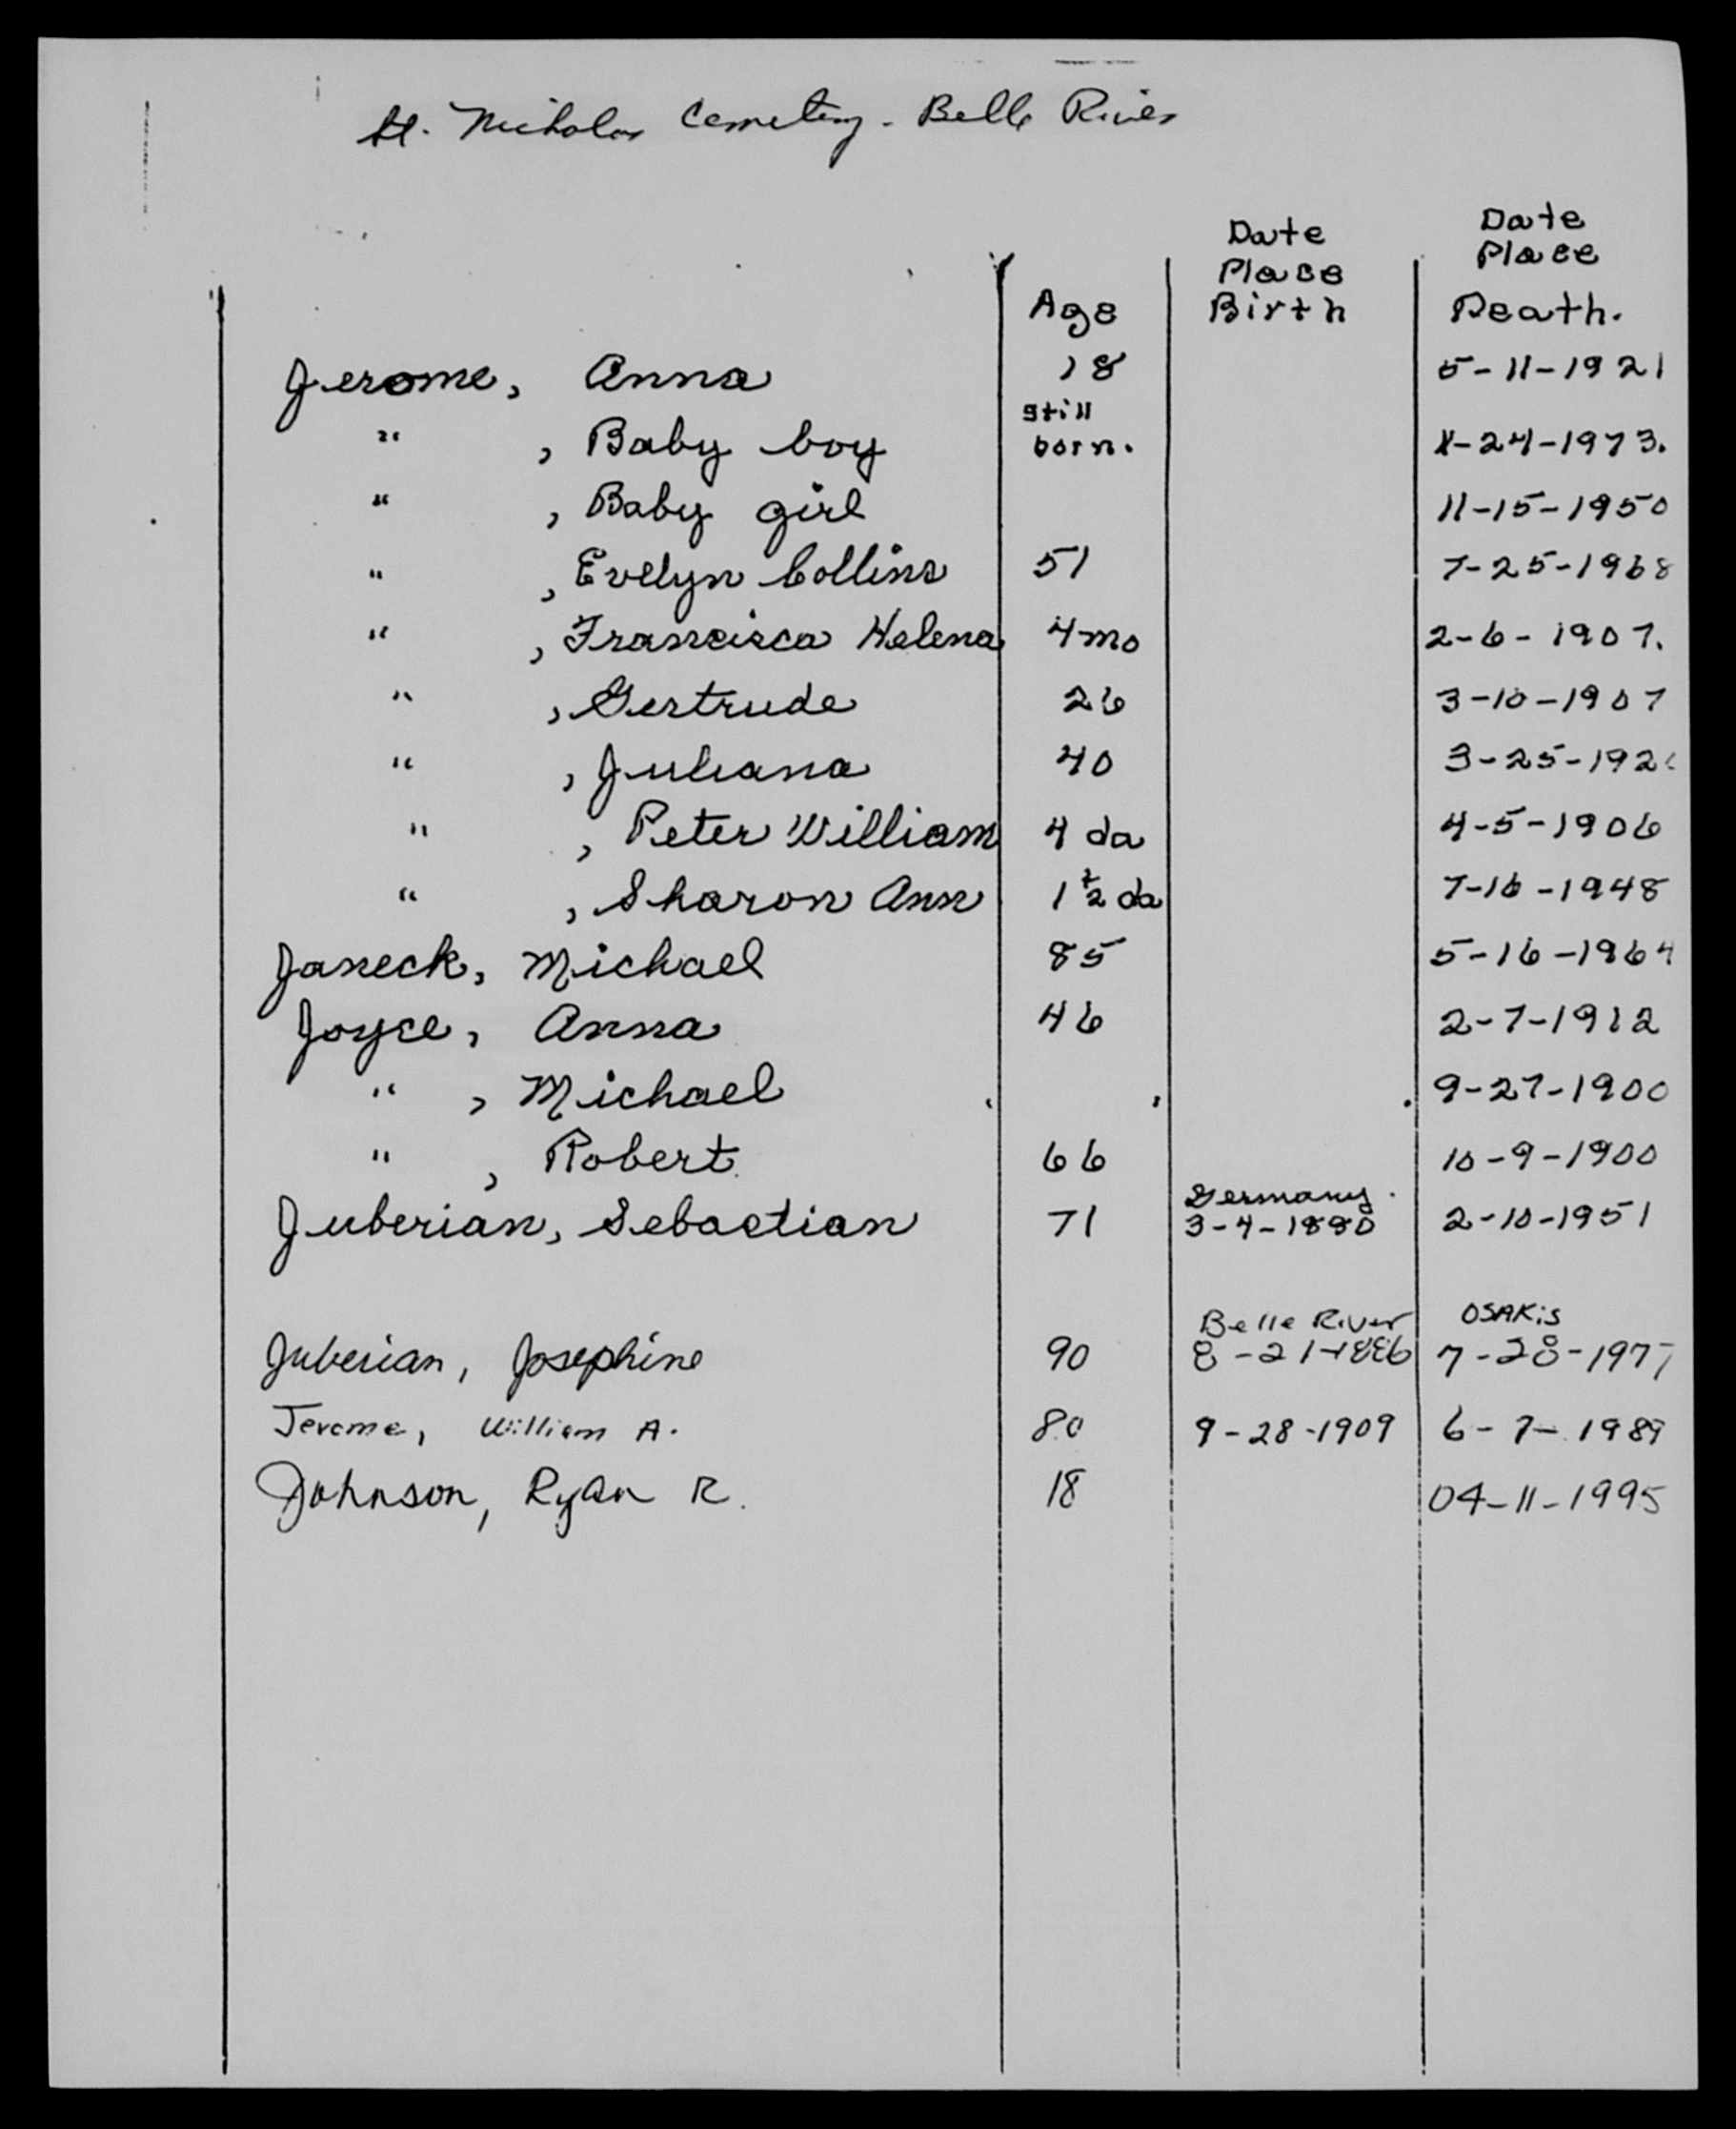 St. Nicholas Cemetery - Belle River
Date Place Birth
Date Place Death.
Age
Jerome, Anna 18 5-11-1921
" , Baby boy still born. 4-24-1973.
" , Baby girl 11-15-1950
" , Evelyn Collins 51 7-25-1968
" , Francisca Helena 4 mo 2-6-1907.
" , Gertrude 26 3-10-1907
" , Juliana 40 3-25-192
" , Peter William 4 da 4-5-1906
" , Sharon Ann 1 1/2 da 7-16-1948
Janeck, Michael 85 5-16-1964
Joyce, Anna 46 2-7-1912
" , Michael 9-27-1900
" , Robert 66 10-9-1900
Juberian, Sebastian 71 Germany. 3-4-1880 2-10-1951
Juberian, Josephine 90 Belle River 8-21-1886 Osakis 7-28-1977
Jerome, William A. 80 9-28-1909 6-7-1989
Johnson, Ryan R. 18 04-11-1995